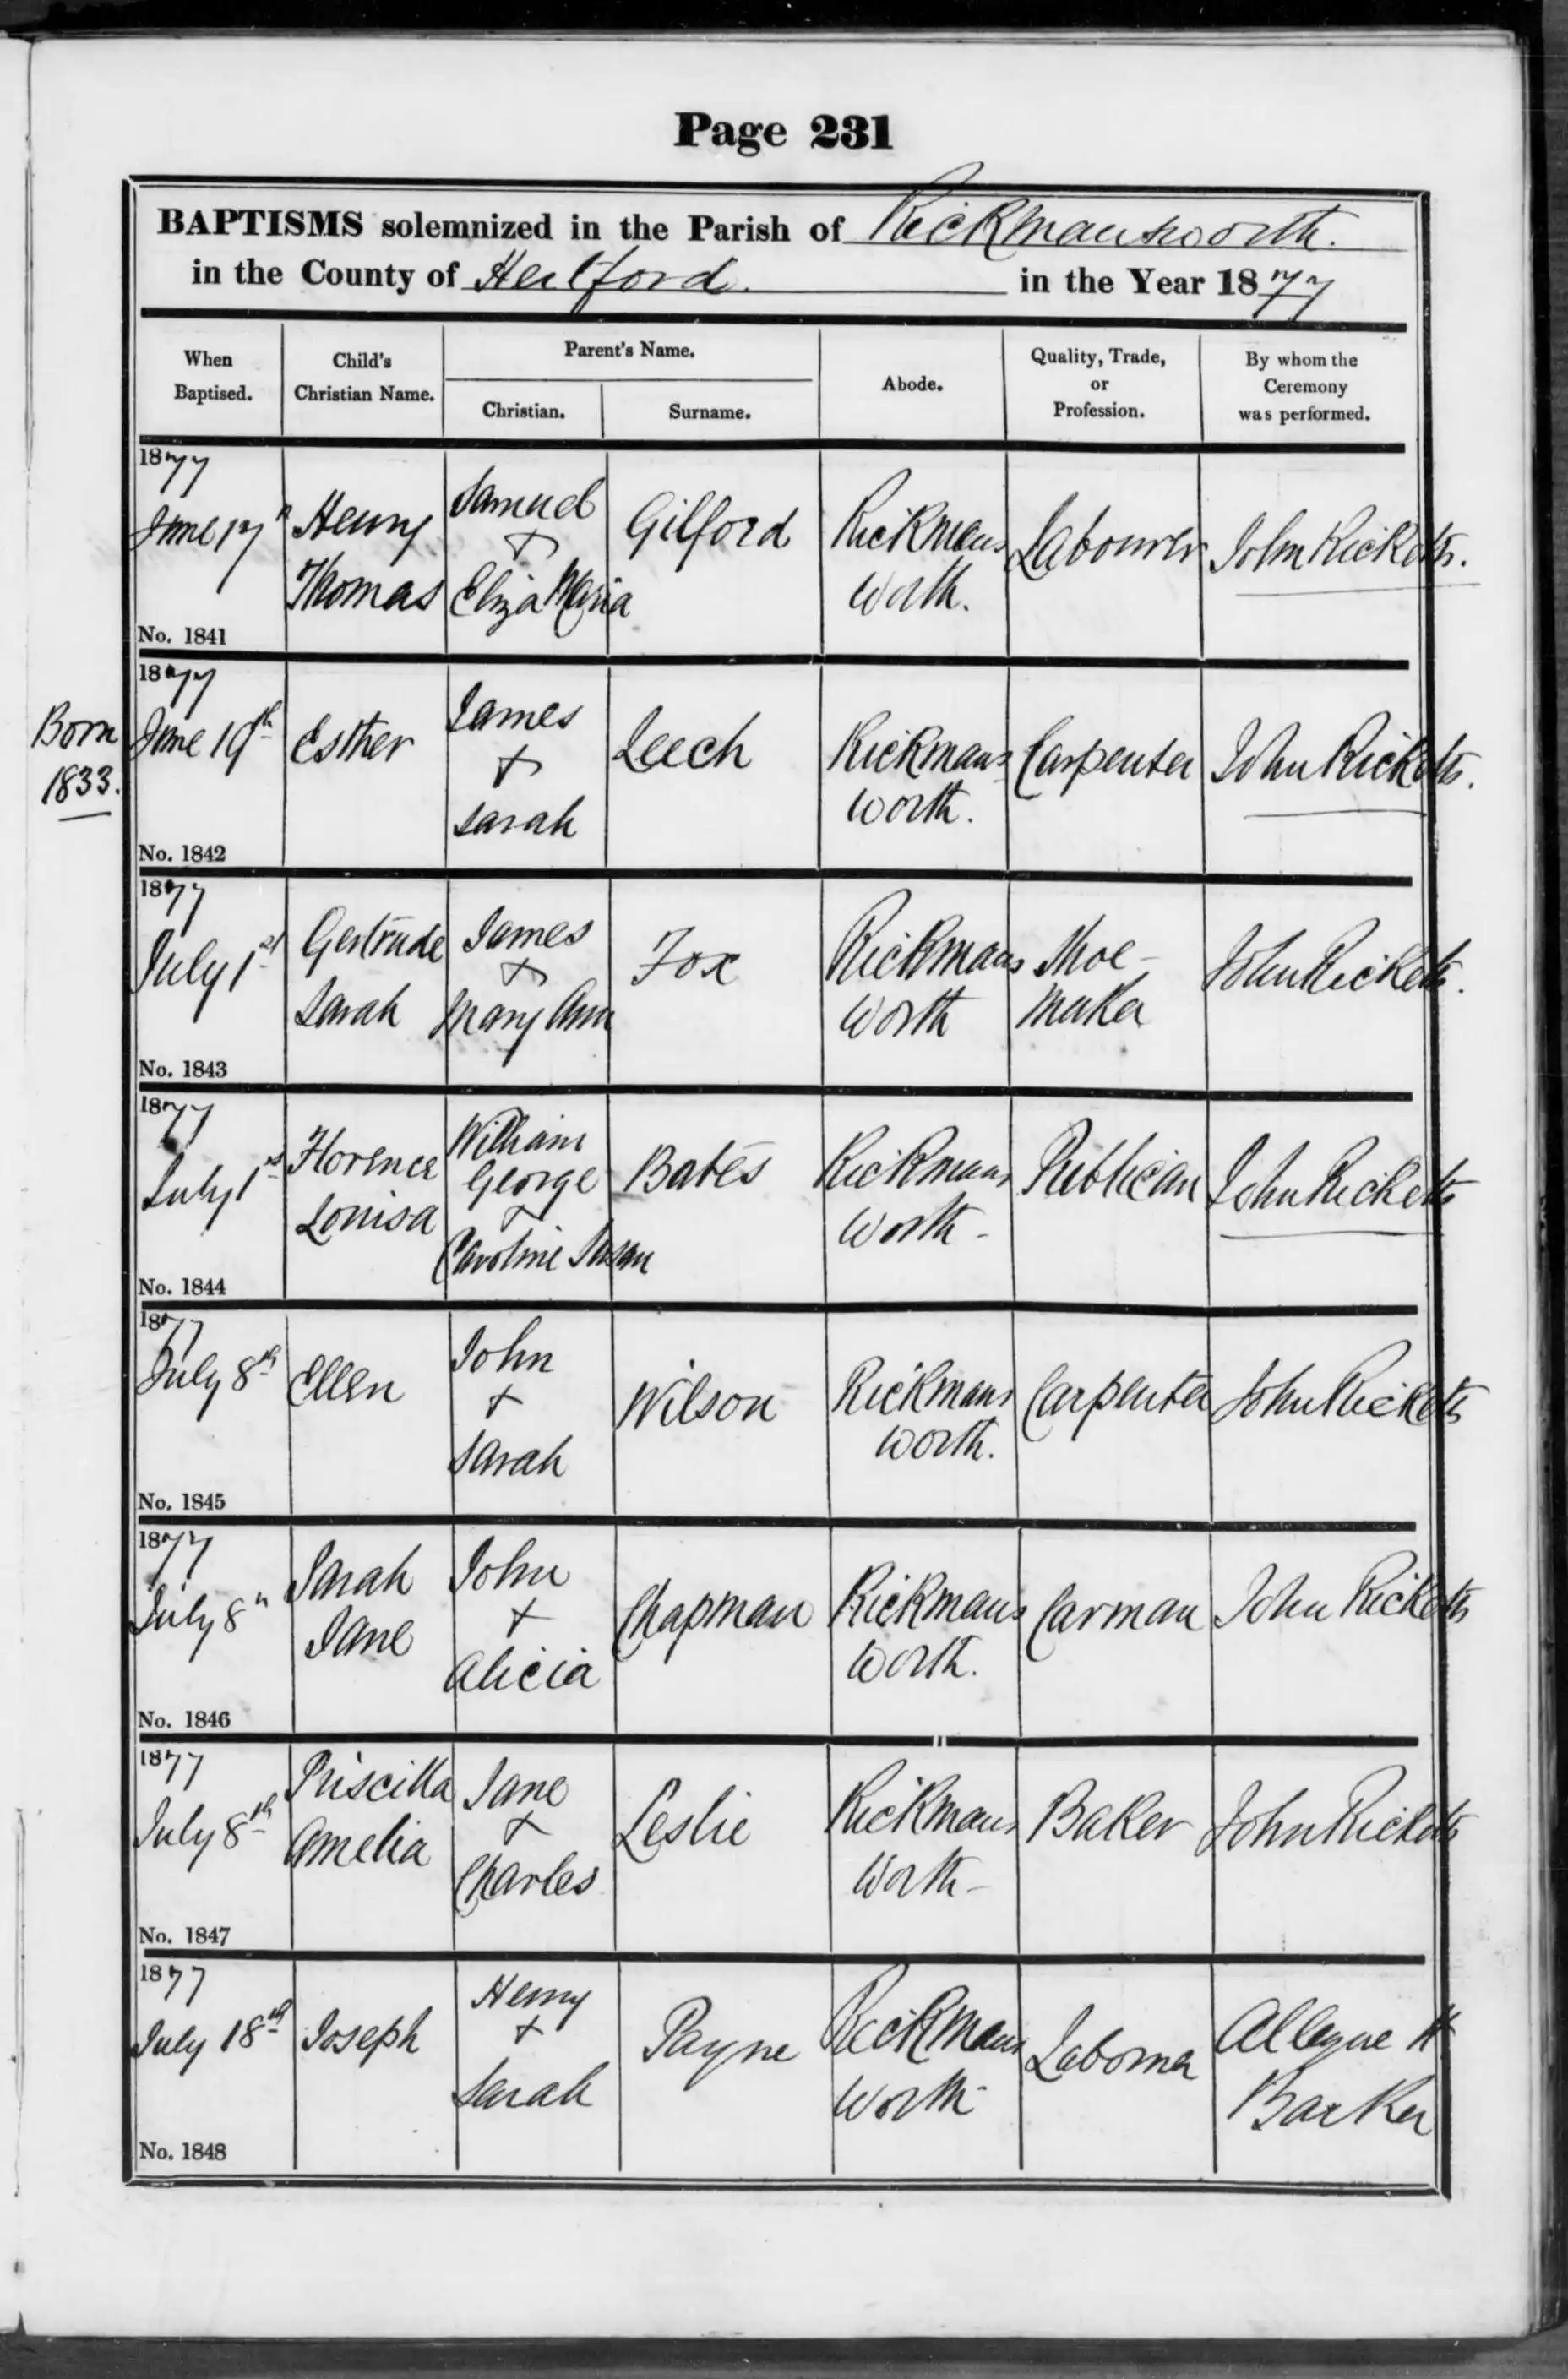 Page 231
BAPTISMS solemnized in the Parish of Rickmansworth.
in the County of Hertford. in the Year 1877
When Baptised.
Child's Christian Name.
Parent's Name.
Christian.
Surname.
Abode.
Quality, Trade, or Profession.
By whom the Ceremony was performed.
1877
June 17th
No. 1841
Henry
Thomas
Samuel
+
Eliza Maria
Gilford
Rickmans
worth.
Labourer
John Ricketts.
Born
1833.
1877
June 19th
No. 1842
Esther
James
+
Sarah
Leech
Rickmans
worth.
Carpenter
John Ricketts.
1877
July 1st
No. 1843
Gertrude
Sarah
James
+
Mary Ann
Fox
Rickmans
worth
Shoe-
maker
John Ricketts.
1877
July 1st
No. 1844
Florence
Louisa
William
George
+
Caroline Susan
Bates
Rickmans
worth-
Publican
John Ricketts
1877
July 8th
No. 1845
Ellen
John
+
Sarah
Wilson
Rickmans
worth.
Carpenter
John Ricketts
1877
July 8th
No. 1846
Sarah
Jane
John
+
Alicia
Chapman
Rickmans
worth.
Carman
John Ricketts
1877
July 8th
No. 1847
Priscilla
Amelia
Jane
+
Charles
Leslie
Rickmans
worth-
Baker
John Ricketts
1877
July 18th
No. 1848
Joseph
Henry
+
Sarah
Payne
Rickmans
worth-
Labourer
Alleyne H
Barker